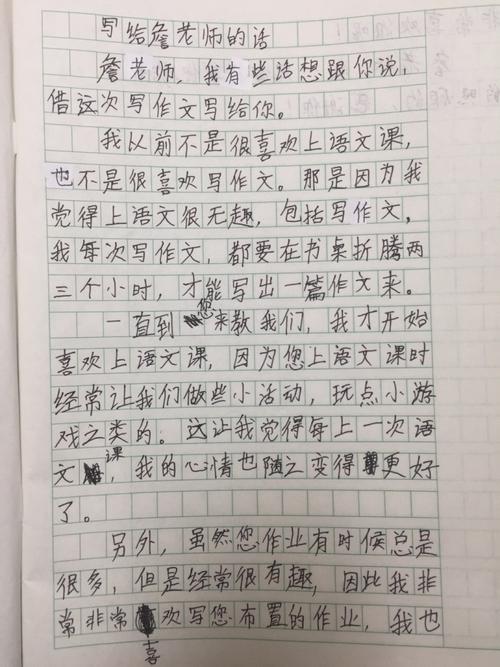 写给詹老师的话
詹老师,我有些话想跟你说,
借这次写作文写给你。
我以前不是很喜欢上语文课,
也不是很喜欢写作文。那是因为我
觉得上语文很无趣,包括写作文,
我每次写作文,都要在书桌折腾两
三个小时,才能写出一篇作文来。
一直到您来教我们,我才开始
喜欢上语文课,因为您上语文课时
经常让我们做些小活动,玩点小游
戏之类的。这让我觉得每上一次语
文课,我的心情也随之变得更好
了。
另外,虽然您作业有时候总是
很多,但是经常很有趣,因此我非
常非常喜欢写您布置的作业,我也